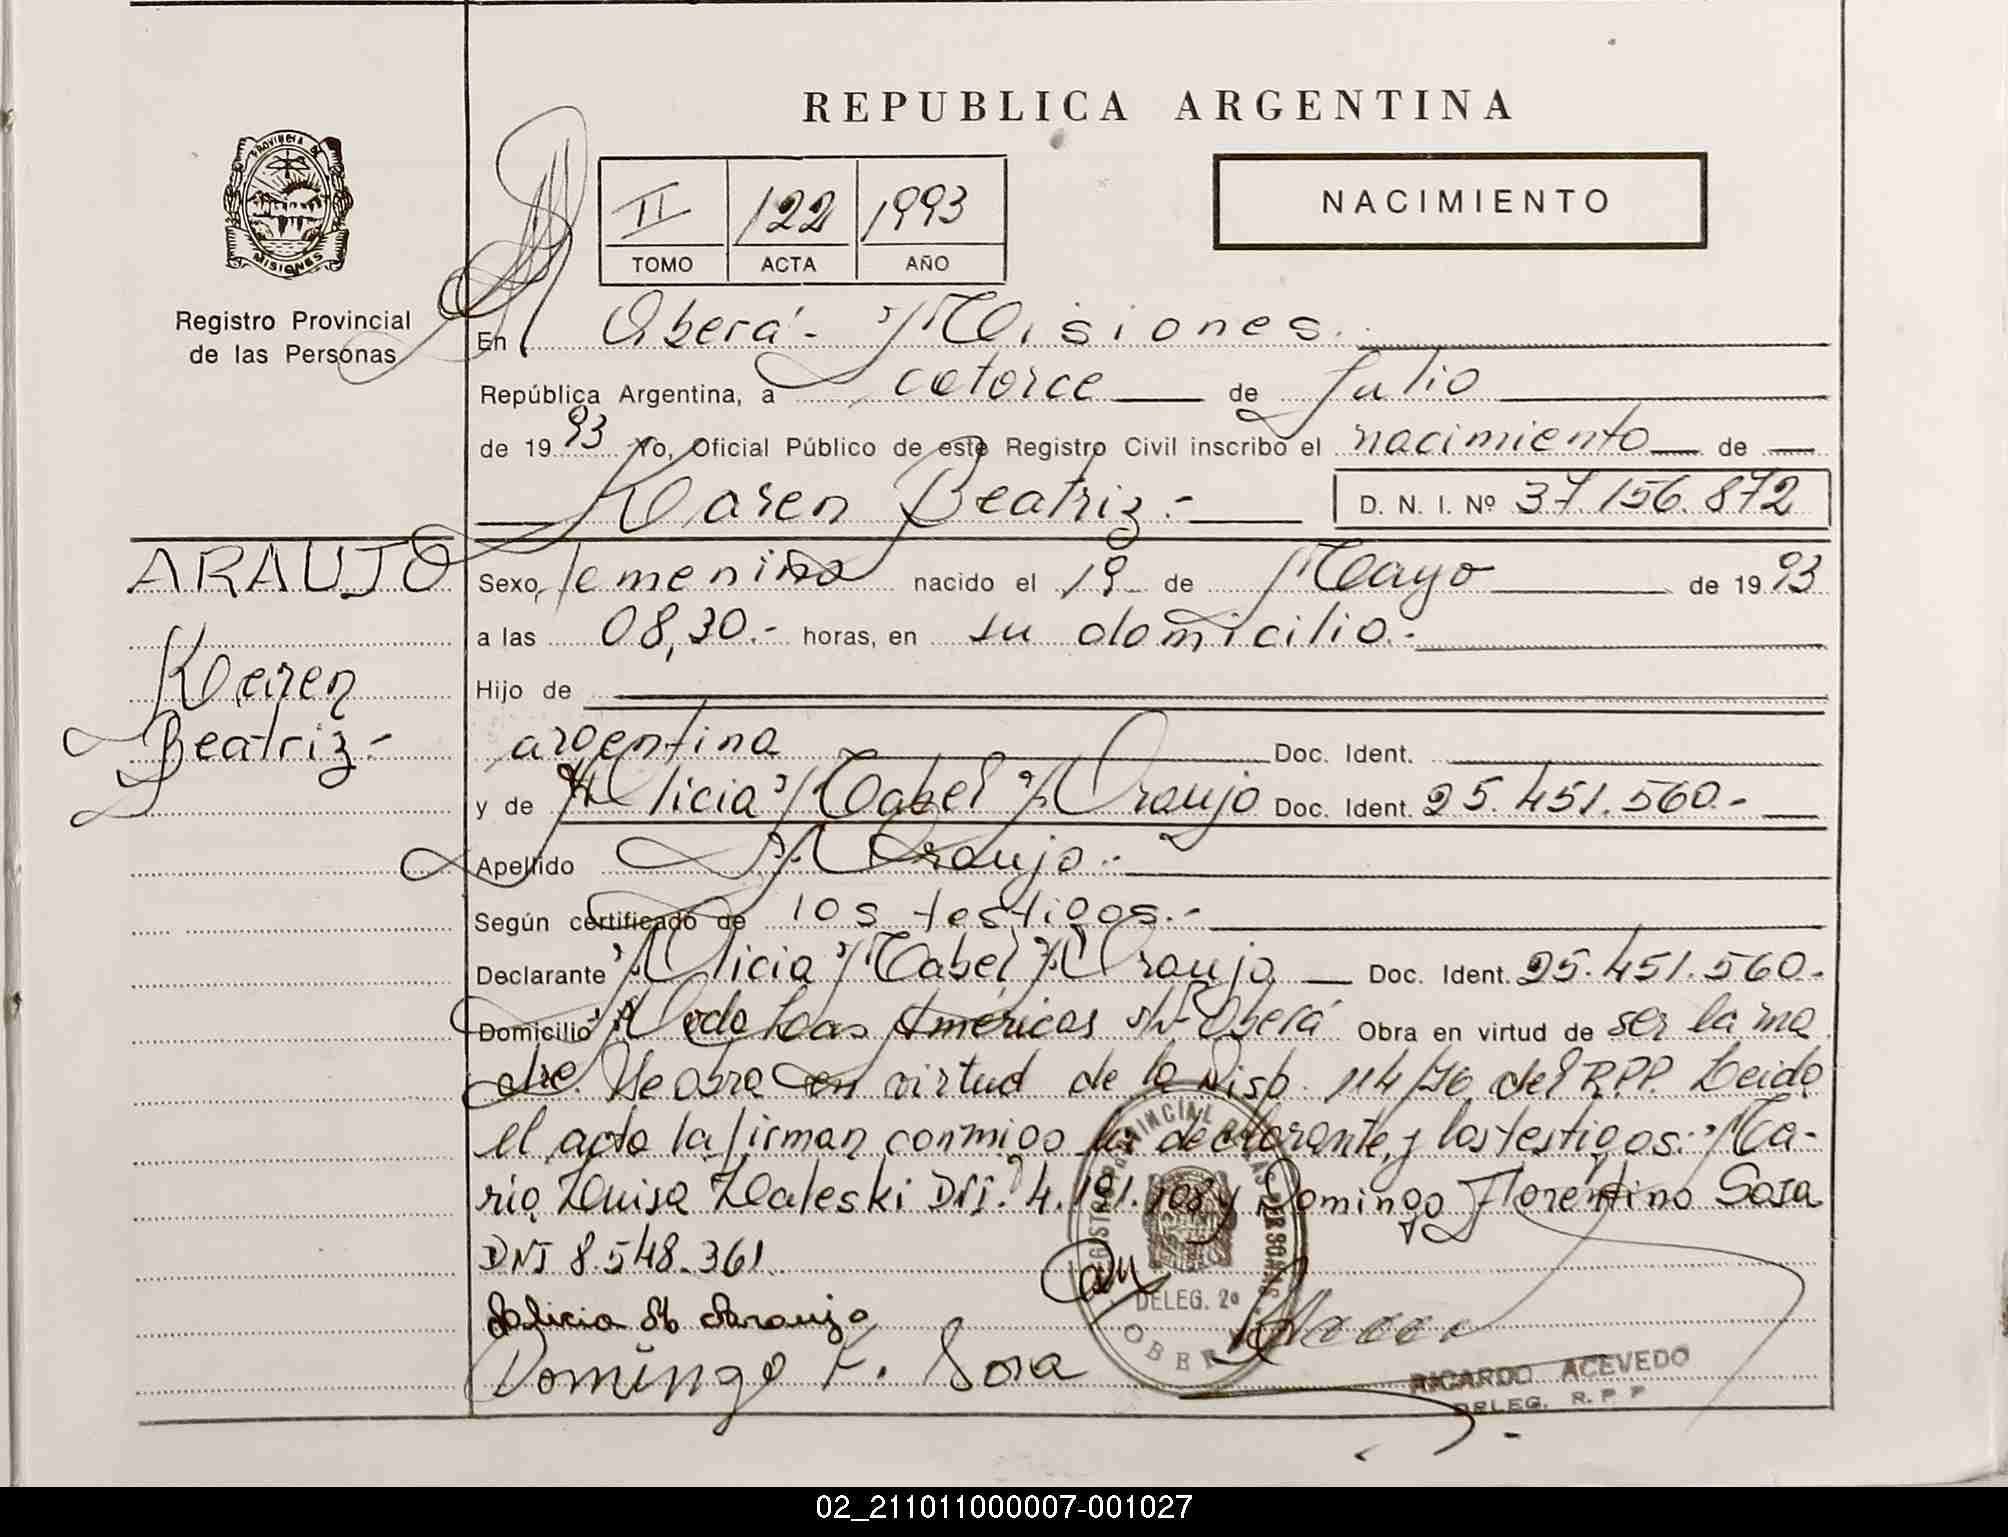 REPUBLICA ARGENTINA
PROVINCIA DE
MISIONES
Registro Provincial
de las Personas
II 122 1993
TOMO ACTA AÑO
NACIMIENTO
En Oberá - Misiones.
República Argentina, a catorce de Julio
de 1993 Yo, Oficial Público de este Registro Civil inscribo el nacimiento de
Karen Beatriz.- D. N. I. Nº 37.156.872
ARAUJO
Karen
Beatriz.-
Sexo femenino nacido el 19 de Mayo de 1993
a las 08,30.- horas, en su domicilio.-
Hijo de
argentina Doc. Ident.
y de Alicia Mabel Araujo Doc. Ident. 25.451.560.-
Apellido Araujo.-
Según certificado de los testigos.-
Declarante Alicia Mabel Araujo Doc. Ident. 25.451.560.-
Domicilio Avda Las Américas s/n- Oberá Obra en virtud de ser la ma
dre. Se obra en virtud de la Disp. 114/76 del R.P.P. Leida
el acta la firman conmigo la declarante, y los testigos: Ma-
ria Luisa Zaleski DNI. 4.191.108 y Domingo Florentino Sosa
DNI 8.548.361.
Alicia M Araujo
Domingo F. Sosa
DELEG. 2a
RICARDO ACEVEDO
DELEG. R. P. P
02_211011000007-001027